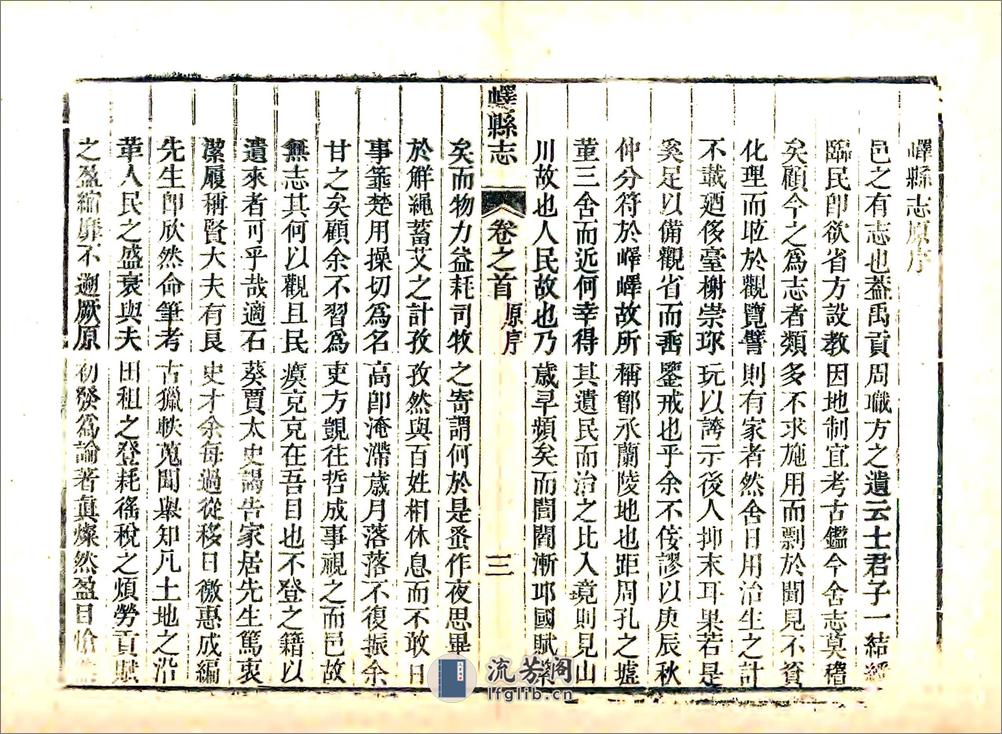 嶧縣志原序
邑之有志也蓋禹貢周職方之遺云士君子一結綬
臨民卽欲省方設教因地制宜考古鑑今舍志莫稽
矣顧今之爲志者類多不求施用而剽於聞見不資
化理而於觀覽譬則有家者然舍日用治生之計
不載廼侈臺榭崇球玩以誇示後人抑末耳果若是
奚足以備觀省而垂鑒戒也乎余不佞謬以庚辰秋
仲分符於嶧嶧故所稱鄫氶蘭陵地也距周孔之墟
董三舍而近何幸得其遺民而治之比入竟則見山
川故也人民故也乃歲旱頻矣而閭閻漸邛國賦繁
嶧縣志 卷之首 原序 三
矣而物力益耗司牧之寄謂何於是蚤作夜思畢
於解繩蓄艾之計孜孜然與百姓相休息而不敢日
事箠楚用操切爲名高卽淹滯歲月落落不復振余
甘之矣顧余不習爲吏方覬往哲成事視之而邑故
無志其何以觀且民瘼克克在吾目也不登之籍以
遺來者可乎哉適石葵賈太史謁告家居先生篤衷
潔履稱賢大夫有良史才余每過從移日徼惠成編
先生卽欣然命筆考古獵軼蒐聞舉知凡土地之沿
革人民之盛衰與夫田租之登耗徭稅之煩勞貢賦
之盈縮靡不遡厥原初發爲論著眞燦然盈目
流芳阁
lfglib.cn